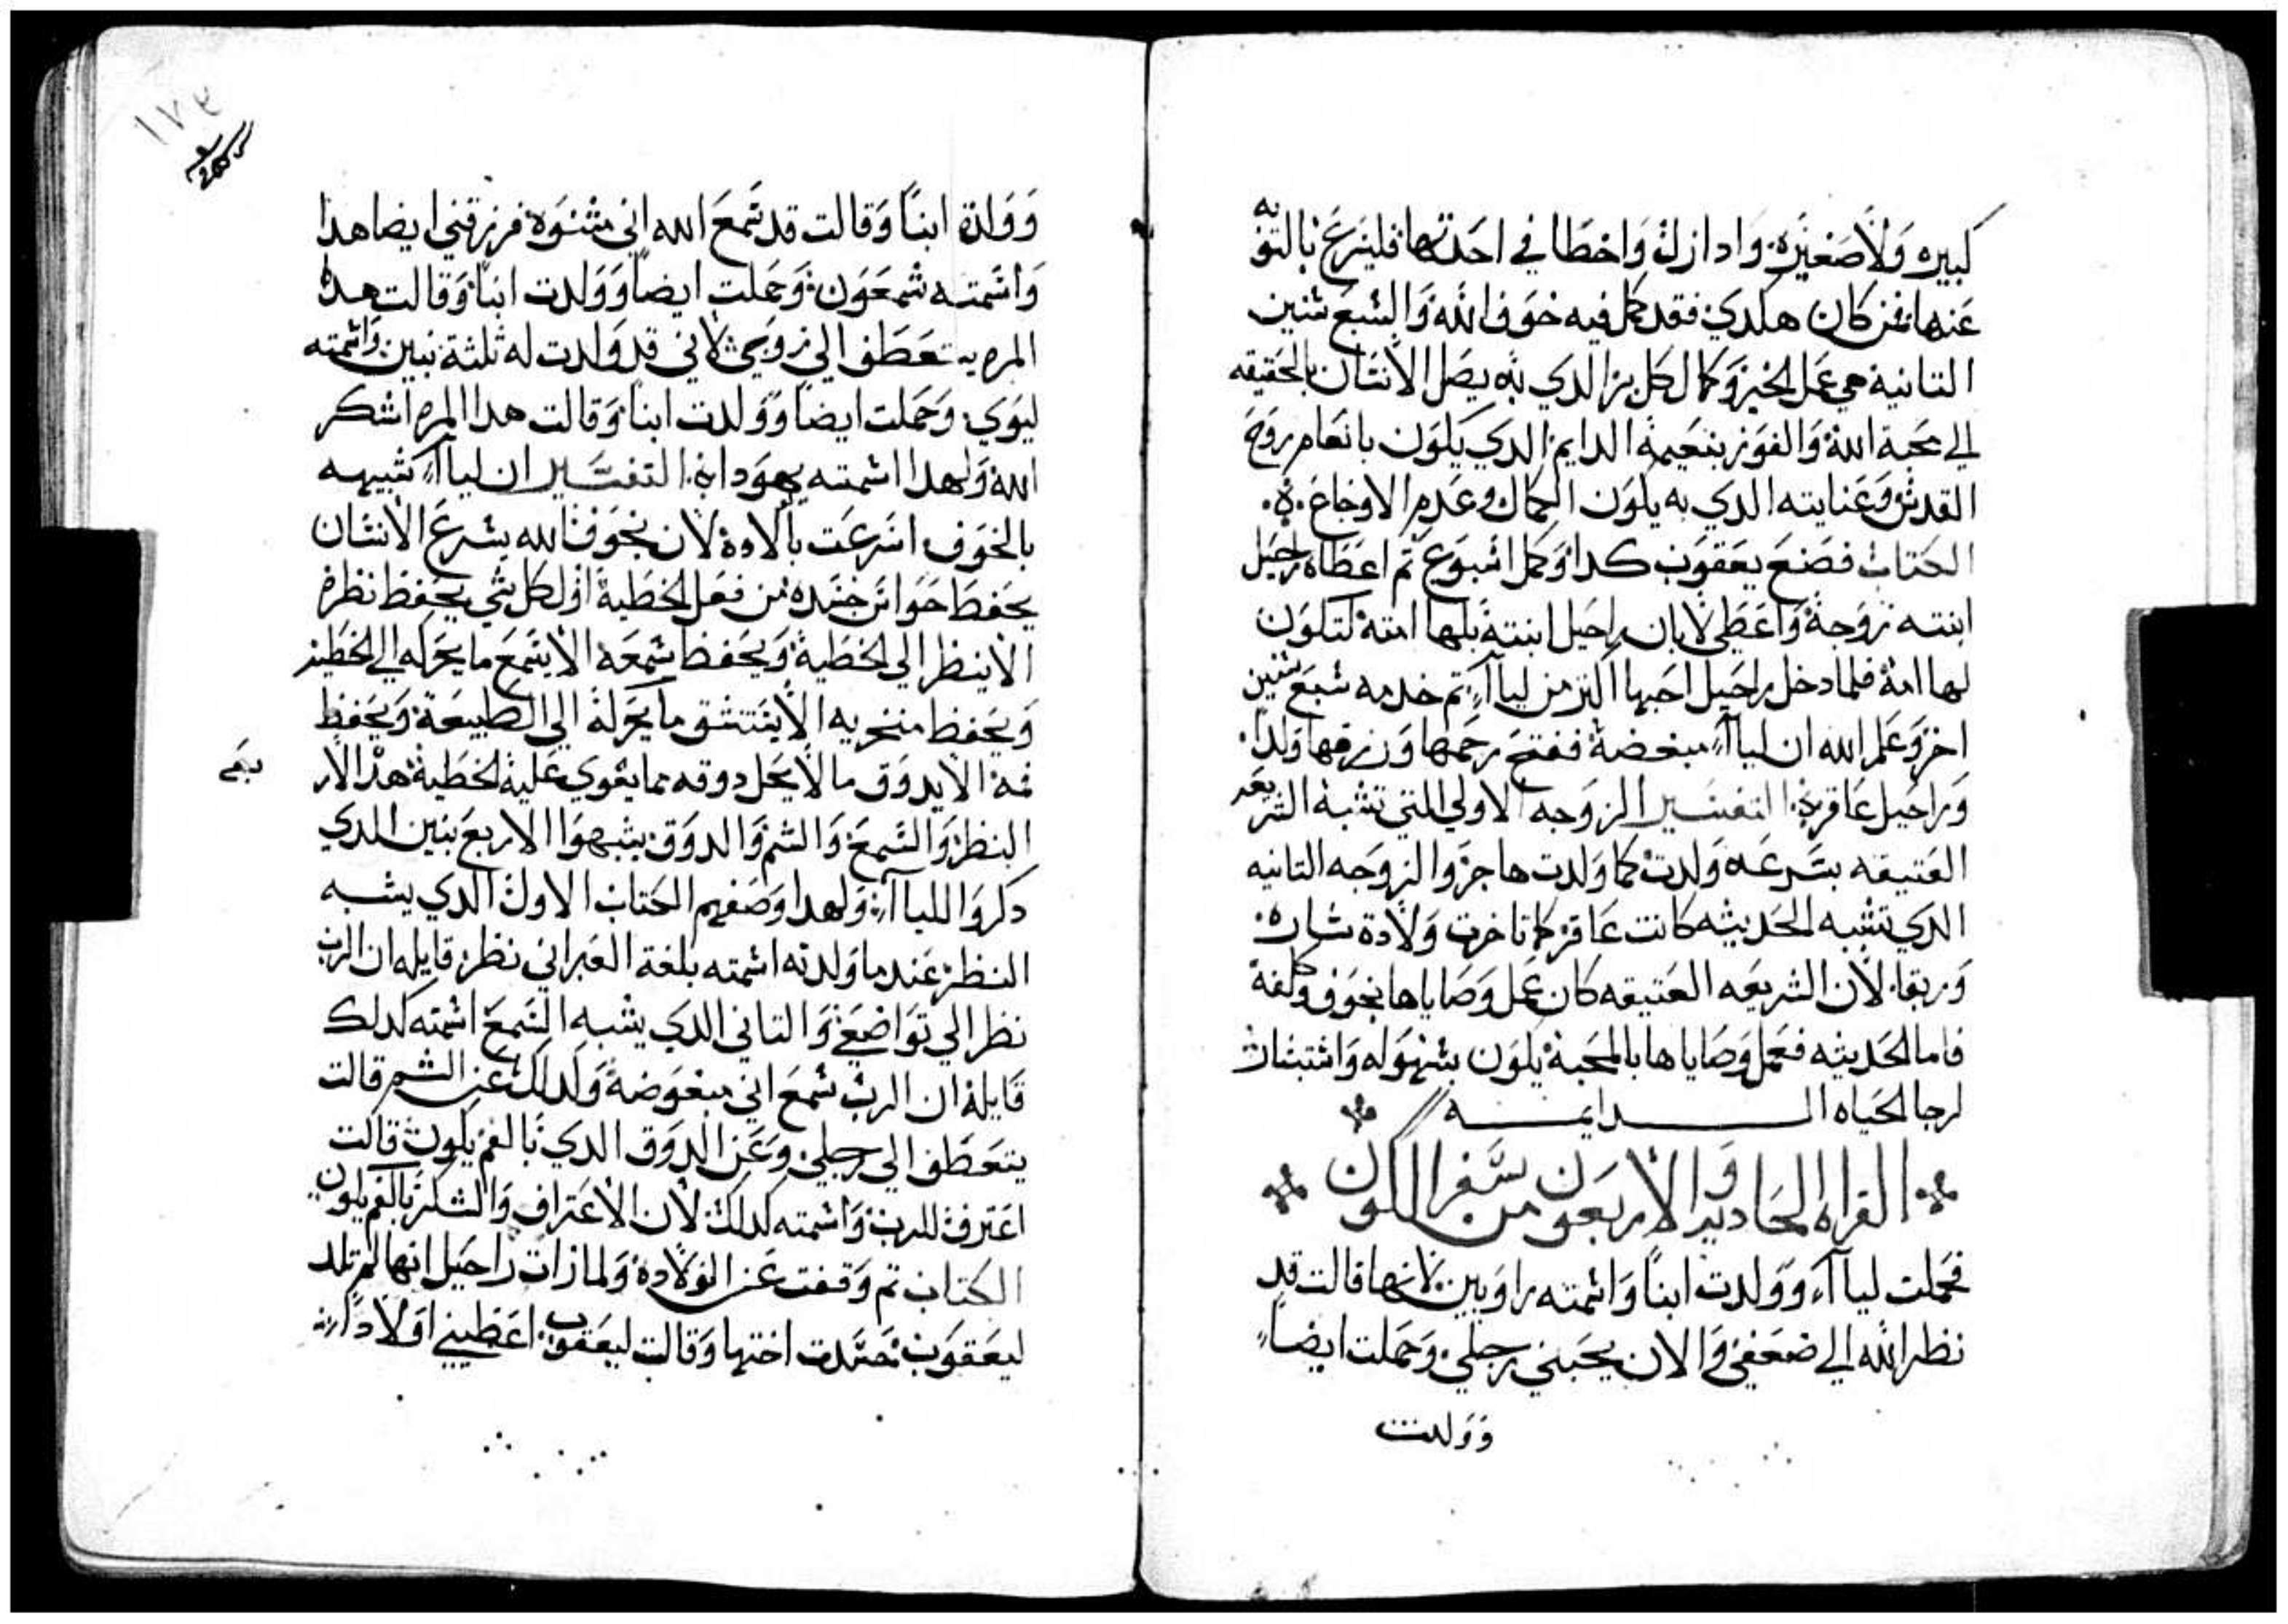 كبيره ولا صغيره وادا زل واخطا في احدتها فليسرع بالتوبه
عنها فمن كان هكدي فقد كمل فيه خوف الله والسبع سنين
التانية هي عمل الخير وكمال كل بر الدي به يصل الانسان بالحقيقه
الي محبة الله والفوز بنعيمه الدايم الدي يكون بانعام روح
القدس وعنايته الدي به يكون الكمال وعدم الاوجاع
الكتاب فصنع يعقوب كدا وكمل اسبوع تم اعطاه راحيل
ابنته زوجة واعطي لابان راحيل ابنته بلها امته لتكون
لها امة فلما دخل راحيل احبها اكتر من لياآ تم خدمه سبع سنين
اخر وعلم الله ان لياآ مبغضة ففتح رحمها ورزقها ولدا
وراحيل عاقره التفسير الزوجه الاولي التي تشبه الشريعه
العتيقه بسرعه ولدت كما ولدت هاجر والزوجه التانيه
الدي تشبه الحديثه كانت عاقر كما تاخرت ولادة ساره
وربقا لان الشريعه العتيقه كان عمل وصاياها بخوف وكلفة
فاما الحديثه فعمل وصاياها بالمحبة يكون بسهوله واستبشار
لرجا الحياه الدايمه
القراه الحاديه والاربعون من سفر الكون
فحملت لياآ وولدت ابنا واسمته راوبين لانها قالت قد
نظر الله الي ضعفي والان يحبني رجلي وحملت ايضا
وولدت
١٧٣
وولدة ابنا وقالت قد سمع الله اني مشنوة فرزقني ايضا هدا
واسمته شمعون وحملت ايضا وولدت ابنا وقالت هده
المره يتعطف الي زوجي لاني قد ولدت له ثلثة بنين واسمته
ليوي وحملت ايضا وولدت ابنا وقالت هدا المره اشكر
الله ولهدا اسمته يهودا التفسير ان لياآ شبيهه
بالخوف اسرعت بالاودة لان بخوف الله يسرع الانسان
يحفظ حواس جسده من فعل الخطية اول كل شي يحفظ نظره
الا ينظر الي الخطية ويحفظ سمعه الا يسمع ما يحركه الي الخطية
ويحفظ منخريه الا يستنشق ما يحركه الي الطبيعة ويحفظ
فمه الا يدوق ما لا يحل دوقه مما يقوي عليه الخطية هدا الار
بعه
النظر والسمع والشم والدوق يشبهوا الاربع بنين الدي
دكروا للياآ ولهدا وصفهم الكتاب الاول الدي يشبه
النظر عندما ولدته اسمته بلغة العبراني نظر قايله ان الرب
نظر الي تواضعي والتاني الدي يشبه السمع اسمته كدلك
قايلة ان الرب سمع اني مبغوضة وكدلك عن الشم قالت
يتعطف الي رجلي وعن الدوق الدي بالفم يكون قالت
اعترف للرب واسمته كدلك لان الاعتراف والشكر بالفم يكون
الكتاب تم وقفت عن الولادة ولما رات راحيل انها لم تلد
ليعقوب حسدت اختها وقالت ليعقوب اعطيني اولادا